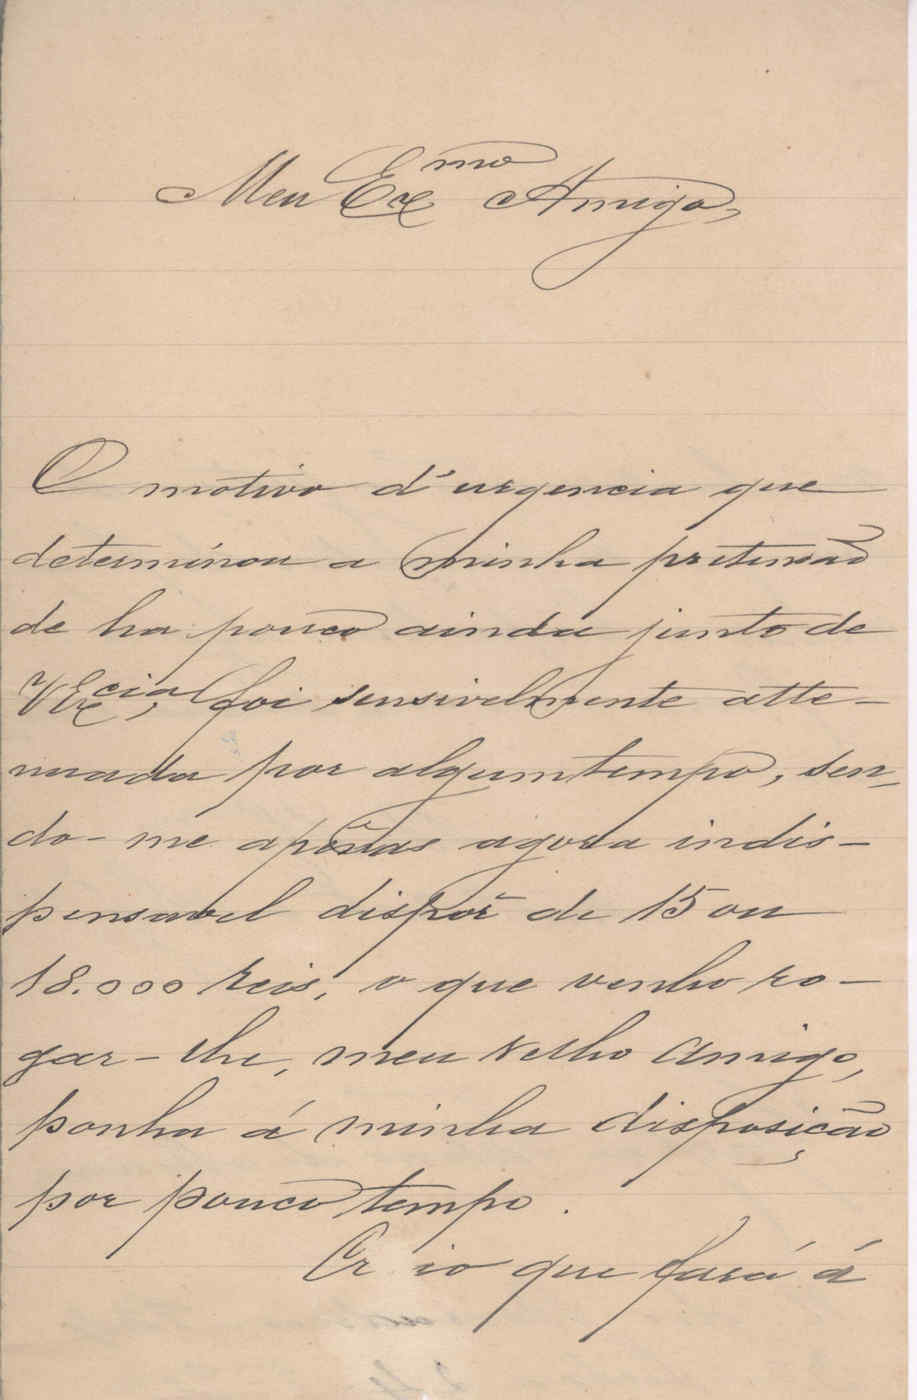 Meu Ex.mo Amigo,
O motivo d'urgencia que
determinou a minha pretensão
de ha pouco ainda junto de
V Ex.cia, foi sensivelmente atte-
nuada por algum tempo, sen-
do-me apenas agora indis-
pensavel dispôr de 15 ou
18.000 reis, o que venho ro-
gar-lhe, meu velho Amigo,
ponha á minha disposição
por pouco tempo.
Creio que fará á